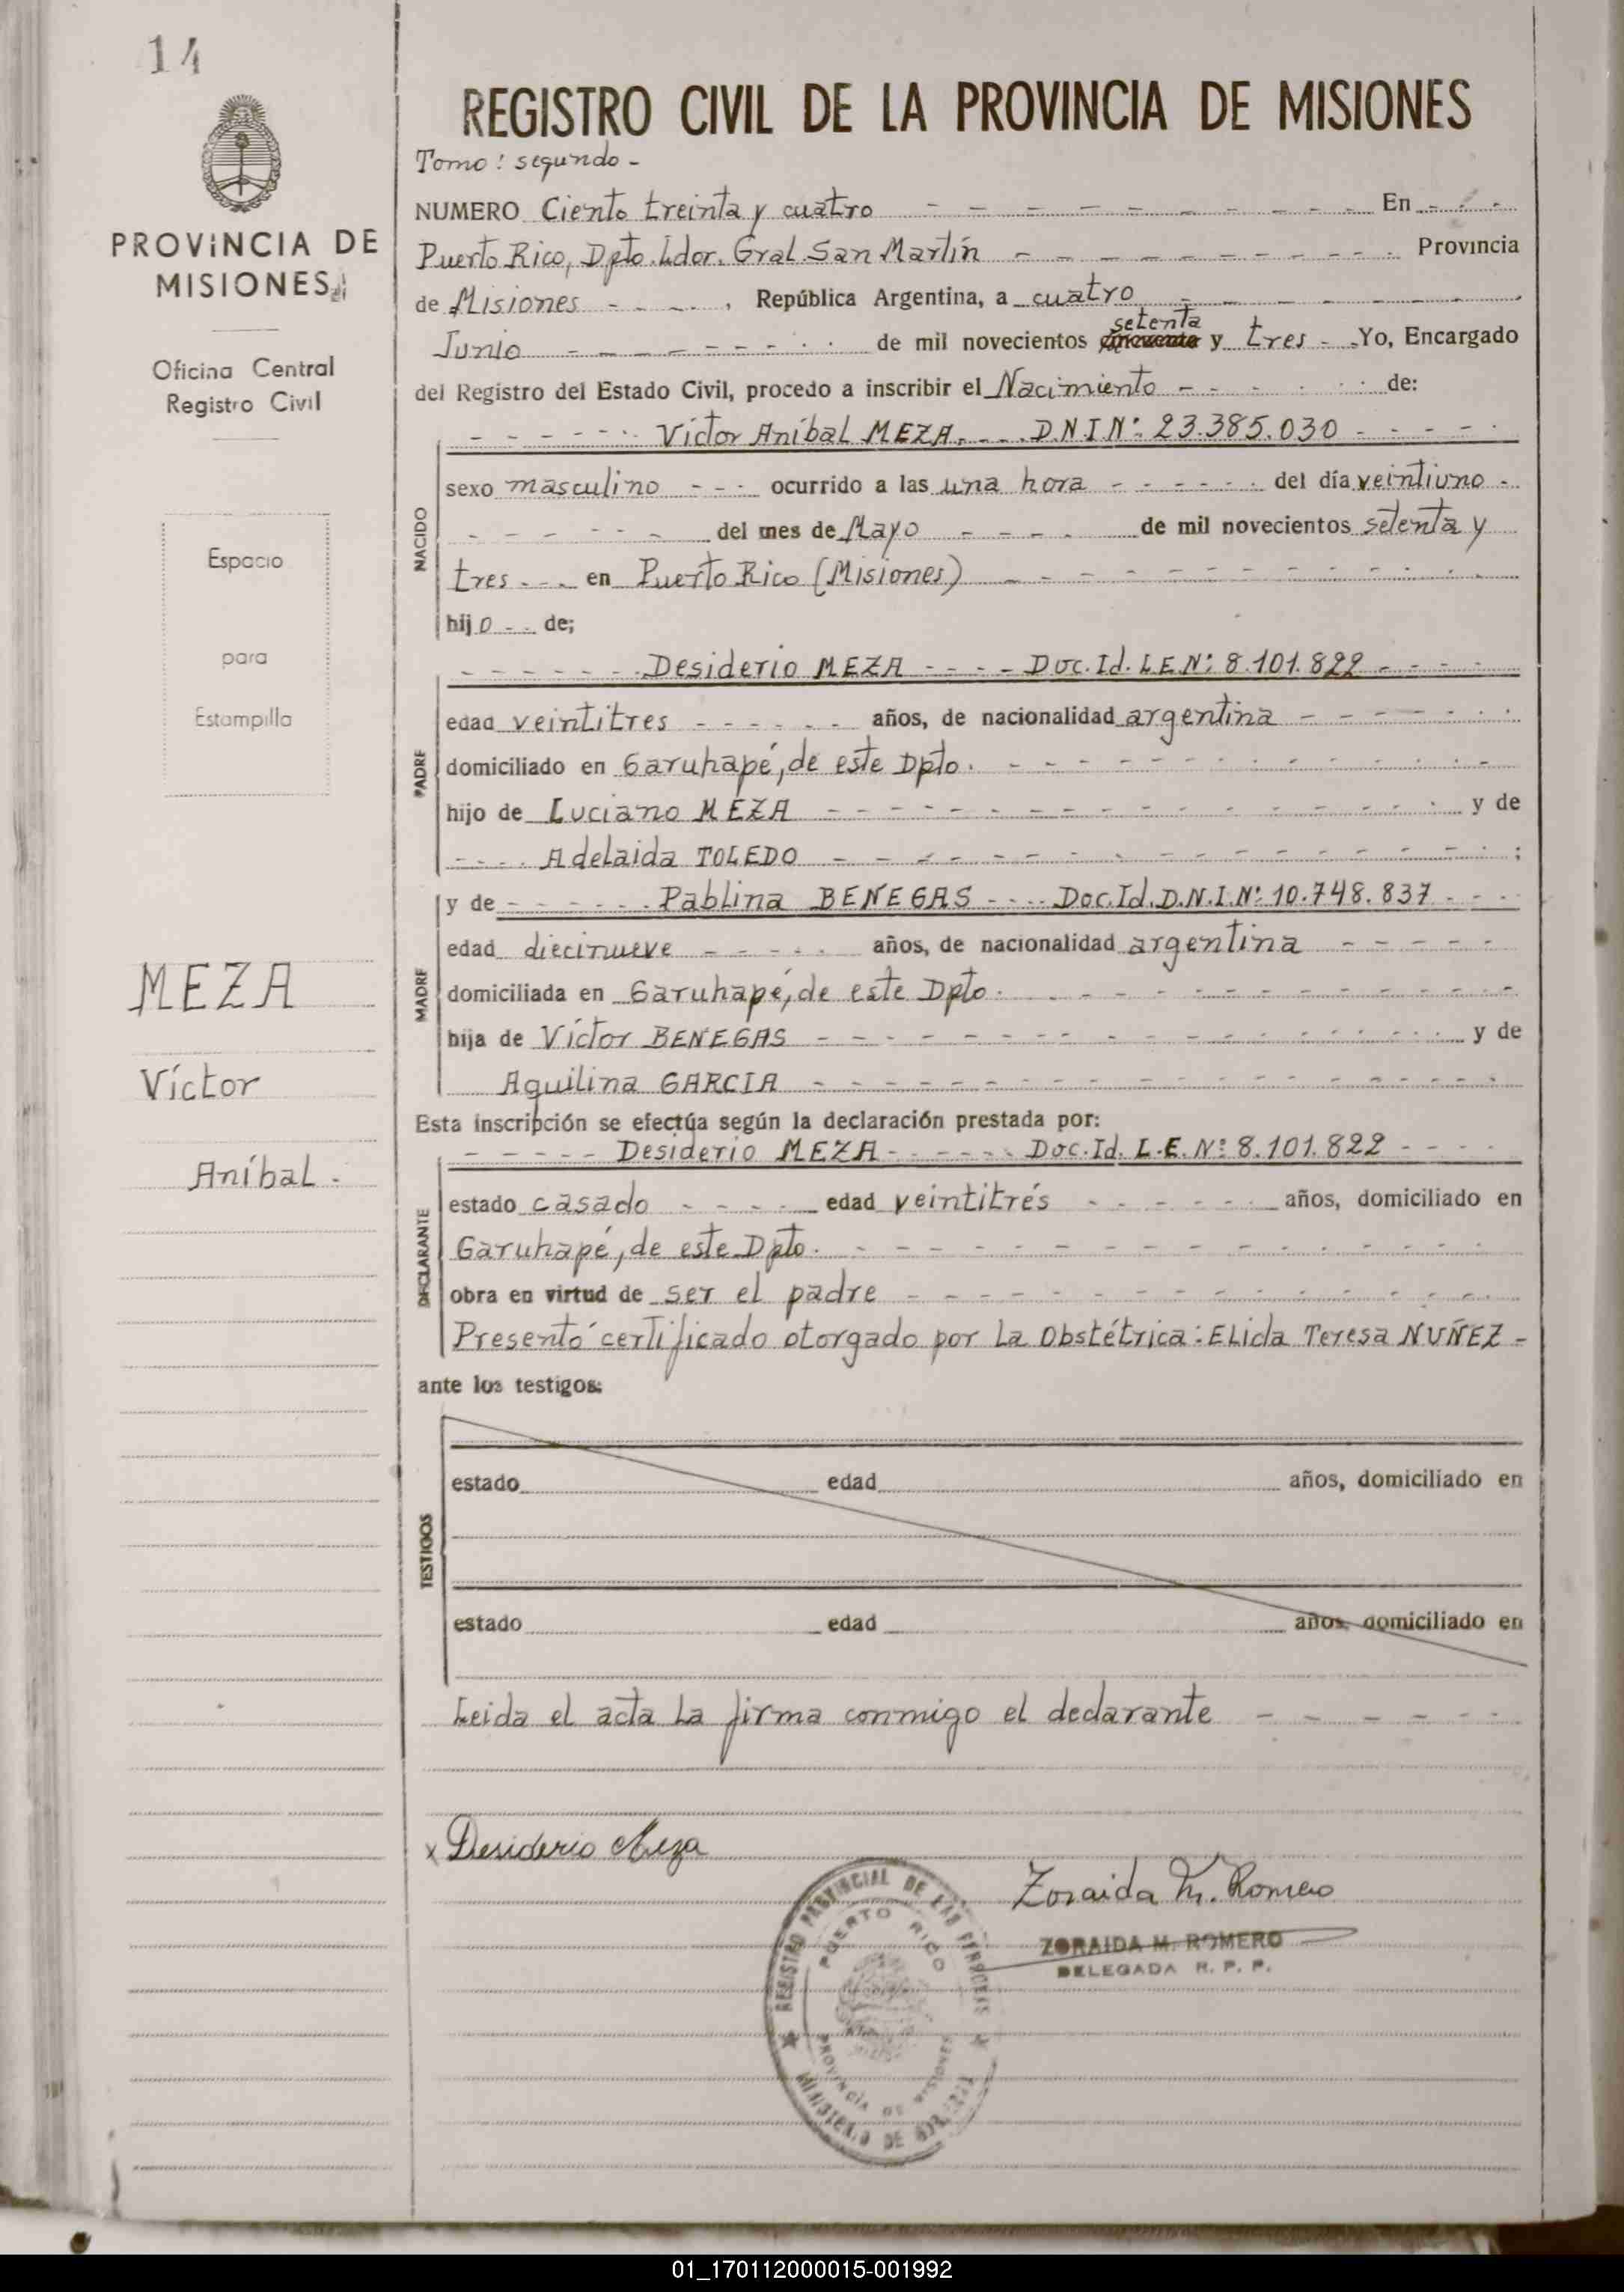 14
PROVINCIA DE
MISIONES
Oficina Central
Registro Civil
Espacio
para
Estampilla
MEZA
Víctor
Aníbal.
REGISTRO CIVIL DE LA PROVINCIA DE MISIONES
Tomo: segundo -
NUMERO Ciento treinta y cuatro En
Puerto Rico, Dpto. Ldor. Gral. San Martín Provincia
de Misiones, República Argentina, a cuatro
setenta
Junio de mil novecientos cincuenta y tres Yo, Encargado
del Registro del Estado Civil, procedo a inscribir el Nacimiento de:
Víctor Aníbal MEZA. DNI Nº: 23.385.030
NACIDO
sexo masculino ocurrido a las una hora del día veintiuno
del mes de Mayo de mil novecientos setenta y
tres en Puerto Rico (Misiones)
hijo de;
Desiderio MEZA Doc. Id. L.E. Nº: 8.101.822
PADRE
edad veintitres años, de nacionalidad argentina
domiciliado en Garuhapé, de este Dpto.
hijo de Luciano MEZA y de
Adelaida TOLEDO ;
y de Pablina BENEGAS Doc. Id. D.N.I. Nº: 10.748.837
MADRE
edad diecinueve años, de nacionalidad argentina
domiciliada en Garuhapé, de este Dpto.
hija de Víctor BENEGAS y de
Aquilina GARCIA
Esta inscripción se efectúa según la declaración prestada por:
Desiderio MEZA Doc. Id. L.E. Nº: 8.101.822
DECLARANTE
estado casado edad veintitrés años, domiciliado en
Garuhapé, de este Dpto.
obra en virtud de ser el padre
Presentó certificado otorgado por la Obstétrica: Elida Teresa NUÑEZ -
ante los testigos:
TESTIGOS
estado edad años, domiciliado en
estado edad años, domiciliado en
Leida el acta la firma conmigo el declarante
x Desiderio Meza
Zoraida M. Romero
ZORAIDA M. ROMERO
DELEGADA R. P. P.
REGISTRO PROVINCIAL DE LAS PERSONAS
PUERTO RICO
PROVINCIA DE MISIONES
MINISTERIO DE GOBIERNO
01_170112000015-001992